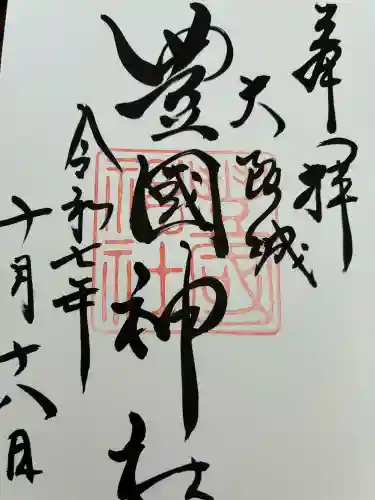 奉拝
大阪城
豊國神社
令和七年
十月十八日